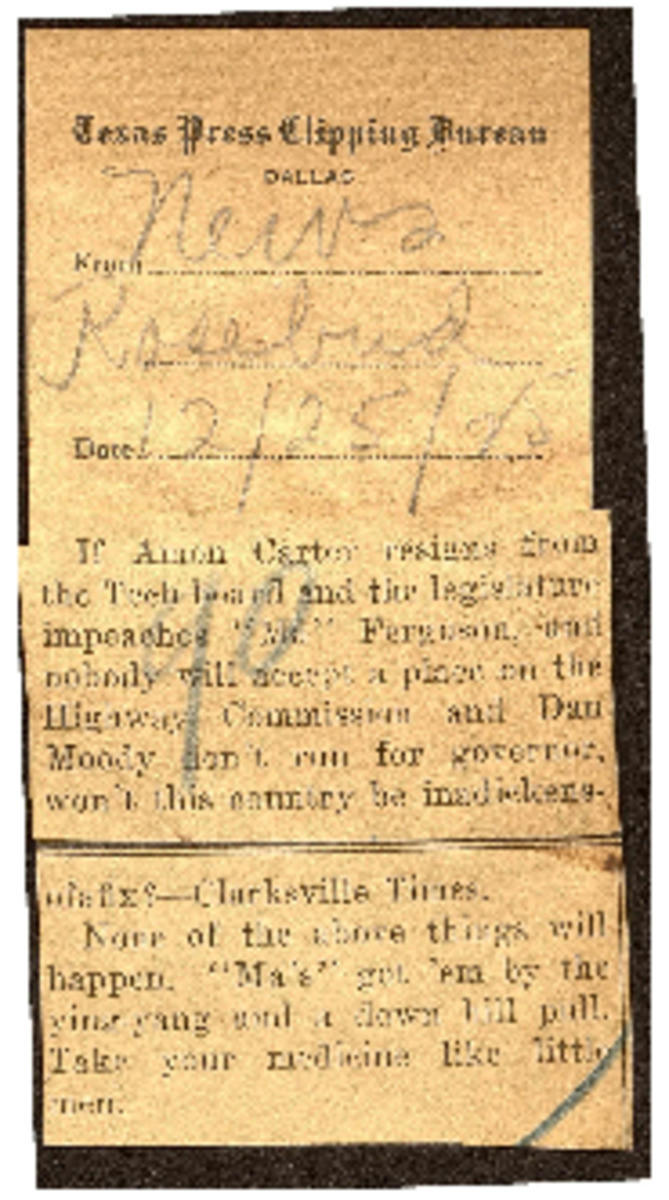 Texas Press Clipping Bureau
DALLAS
From News
Rosebud
Date 12/25/25
If Amon Carter resigns from
the Tech board and the legislature
impeaches "Ma" Ferguson, and
nobody will accept a place on the
Highway Commission and Dan
Moody don't run for governor,
won't this country be inadickens-
ofafix?—Clarksville Times.
None of the above things will
happen. "Ma's" got 'em by the
ying yang and a down hill pull.
Take your medicine like little
men.